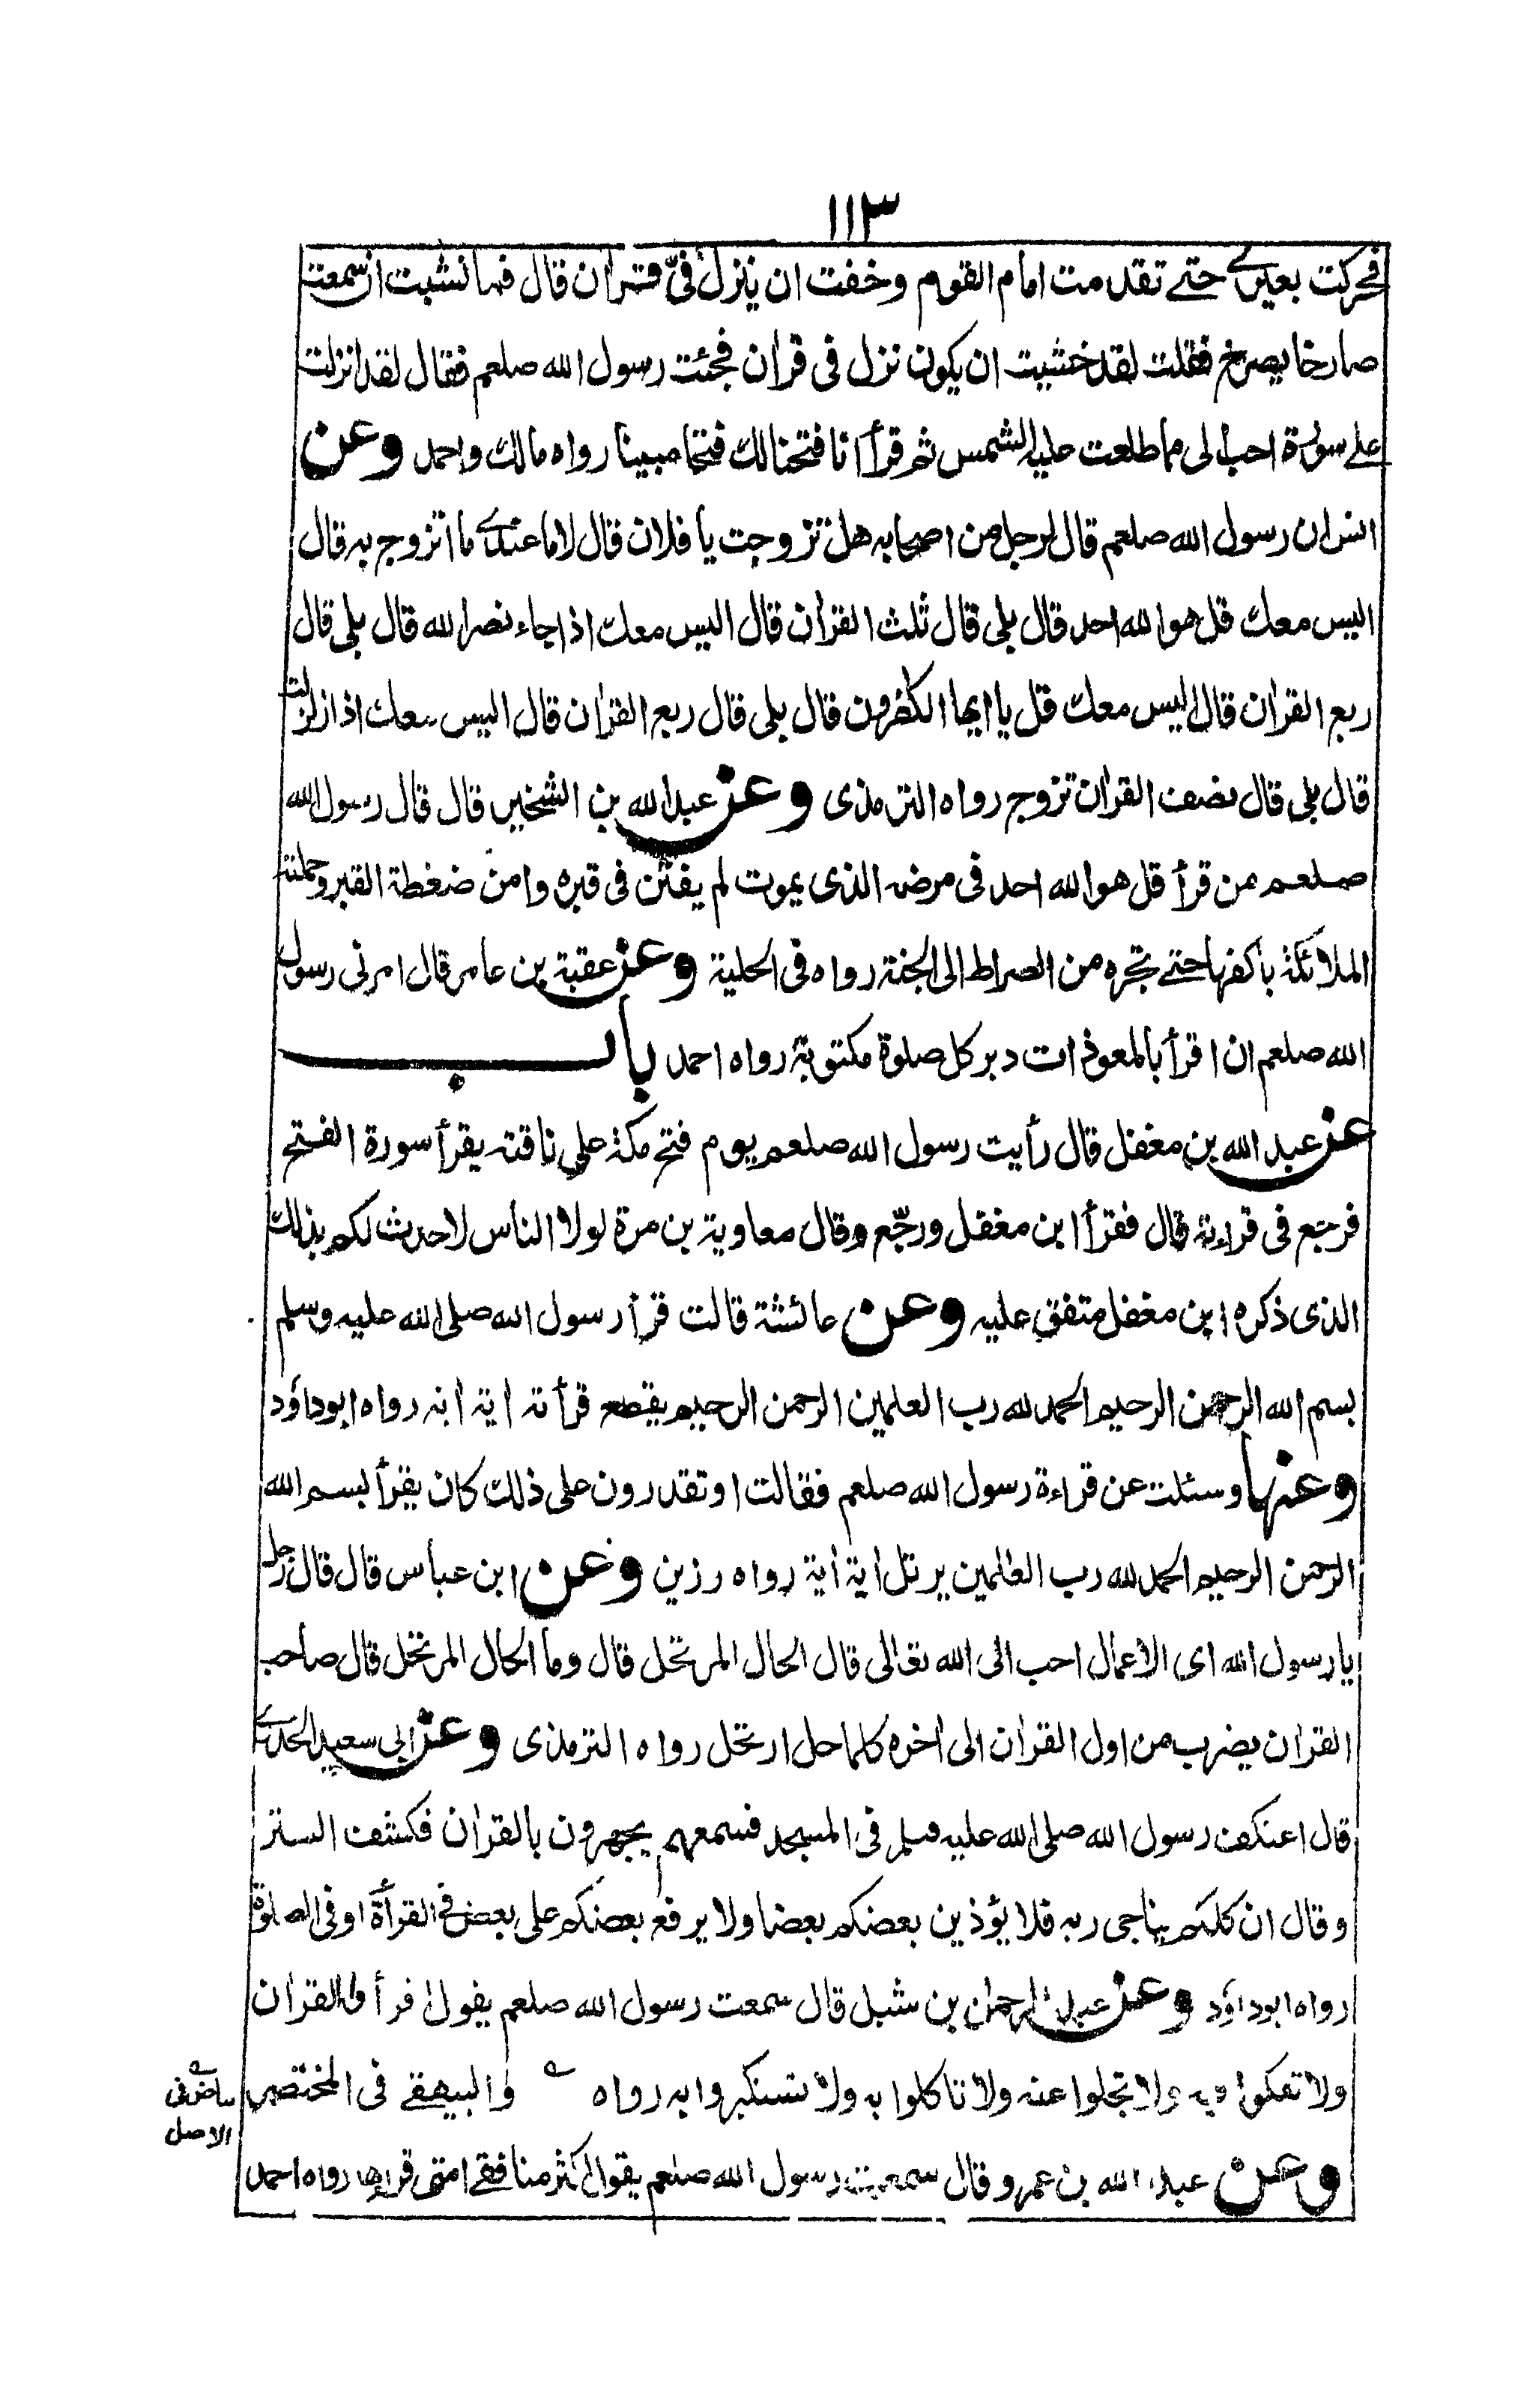 ١١٣
فحركت بعيري حتے تقدمت امام القوم وخفت ان ينزل فيّ قران قال فما نشبت ان سمعت
صارخا يصرخ فقلت لقد خشيت ان يكون نزل فى قران فجئت رسول الله صلعم فقال لقد انزلت
علے سورة احب الى مما طلعت عليه الشمس ثم قرأ انا فتحنا لك فتحا مبينا رواه مالك واحمد وعن
انس ان رسول الله صلعم قال لرجل من اصحابه هل تزوجت يا فلان قال لا ما عندے ما اتزوج به قال
اليس معك قل هو الله احد قال بلى قال ثلث القران قال اليس معك اذا جاء نصر الله قال بلى قال
ربع القران قال اليس معك قل يا ايها الكفرون قال بلى قال ربع القران قال اليس معك اذا زلزلت
قال بلى قال نصف القران تزوج رواه الترمذى وعن عبد الله بن الشخير قال قال رسول الله
صلعم من قرأ قل هو الله احد فى مرضه الذى يموت لم يفتن فى قبره وامن ضغطة القبر وحملته
الملائكة بأكفها حتے تجره من الصراط الى الجنة رواه فى الحلية وعن عقبة بن عامر قال امرنى رسول
الله صلعم ان اقرأ بالمعوذات دبر كل صلوة مكتوبة رواه احمد باب
عن عبد الله بن مغفل قال رأيت رسول الله صلعم يوم فتح مكة على ناقته يقرأ سورة الفتح
فرجع فى قراءته قال فقرأ ابن مغفل ورجّع وقال معاوية بن مرة لولا الناس لاحدث لكم بذلك
الذى ذكره ابن مغفل متفق عليه وعن عائشة قالت قرأ رسول الله صلى الله عليه وسلم
بسم الله الرحمن الرحيم الحمد لله رب العلمين الرحمن الرحيم يقطع قرأته اية اية رواه ابوداؤد
وعنها وسئلت عن قراءة رسول الله صلعم فقالت اوتقدرون على ذلك كان يقرأ بسم الله
الرحمن الرحيم الحمد لله رب العالمين يرتل اية اية رواه رزين وعن ابن عباس قال قال رجل
يا رسول الله اى الاعمال احب الى الله تعالى قال الحال المرتحل قال وما الحال المرتحل قال صاحب
القران يضرب من اول القران الى اخره كلما حل ارتحل رواه الترمذى وعن ابى سعيد الخدرے
قال اعتكف رسول الله صلى الله عليه وسلم فى المسجد فسمعهم يجهرون بالقران فكشف الستر
وقال ان كلكم يناجى ربه فلا يؤذين بعضكم بعضا ولا يرفع بعضكم على بعض فى القرأة او فى الصلوة
رواه ابوداؤد وعن عبد الرحمن بن شبل قال سمعت رسول الله صلعم يقول اقرأوا القران
ولا تغلوا فيه ولا تجفوا عنه ولا تاكلوا به ولا تستكبروا به رواه والبيهقے فى المختصر
بياض فى
الاصل
وعن عبد الله بن عمرو قال سمعت رسول الله صلعم يقول اكثر منافقے امتى قراؤها رواه احمد